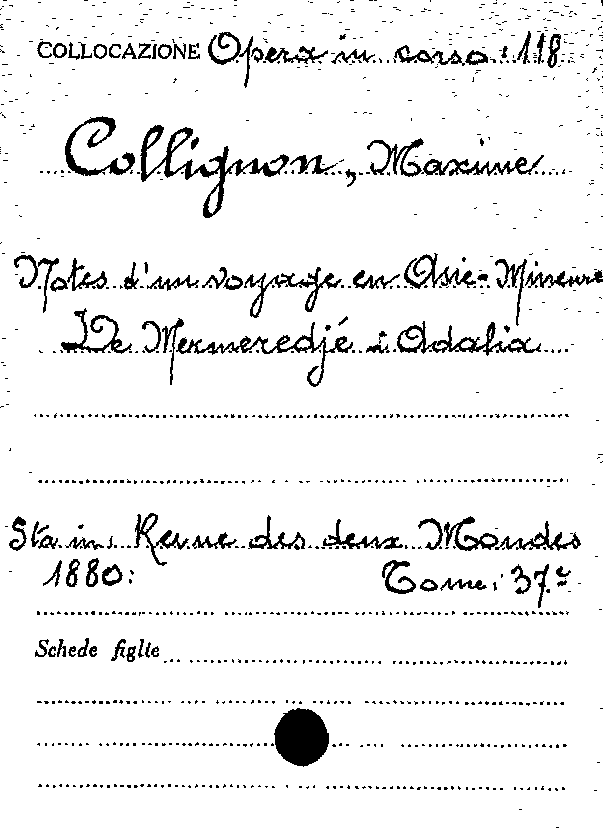 COLLOCAZIONE Opera in corso: 118
Collignon, Maxime
Notes d'un voyage en Asie-Mineure
De Mermeredjé à Adalia
Sta in: Revue des deux Mondes
1880: Tome: 37.e
Schede figlie